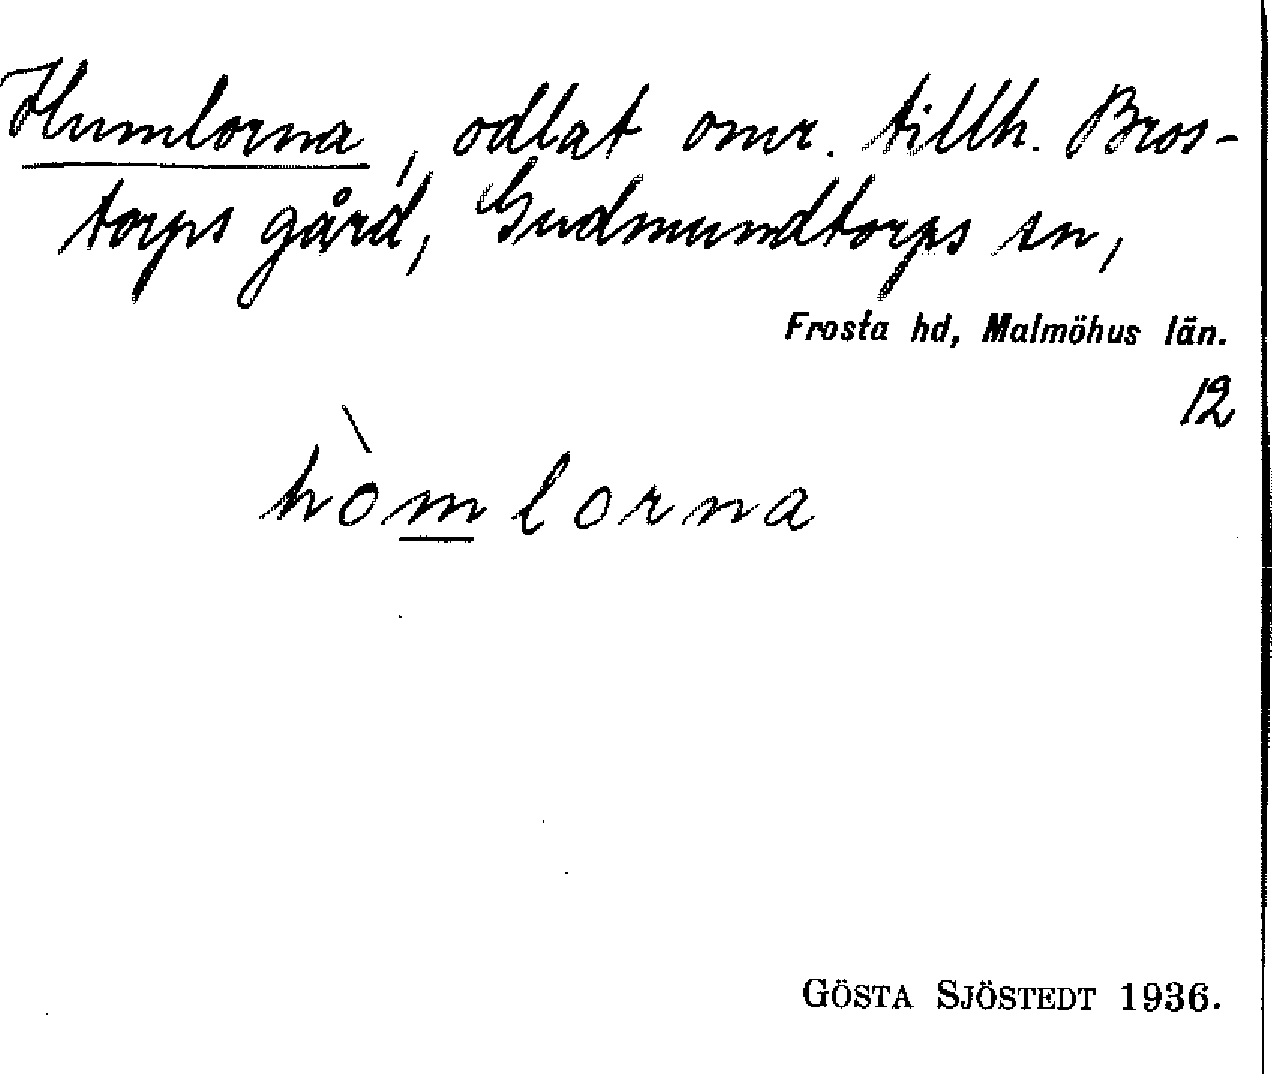 Humlorna, odlat omr. tillh. Bros-
torps gård, Gudmundtorps sn,
Frosta hd, Malmöhus län.
12
hòmlorna
GÖSTA SJÖSTEDT 1936.